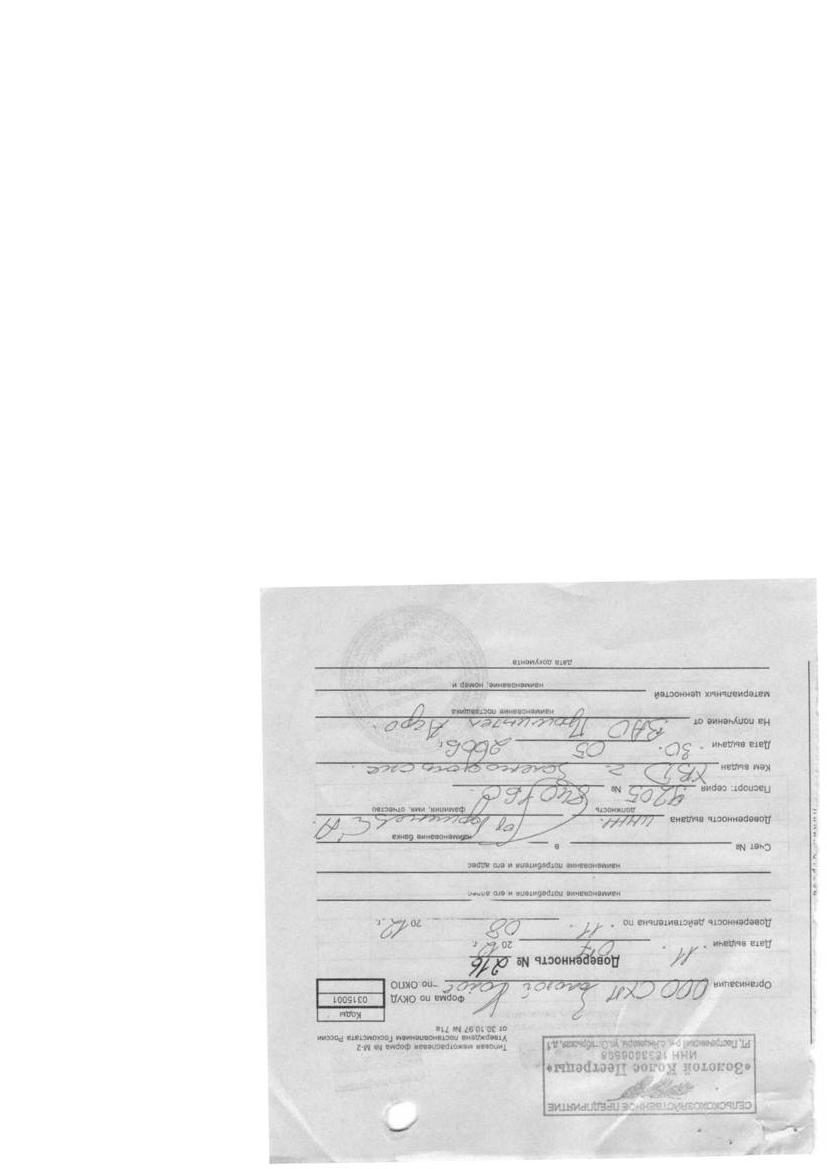 СЕЛЬСКОХОЗЯЙСТВЕННОЕ ПРЕДПРИЯТИЕ
«Золотой Колос Пестрецы»
ИНН
РТ, Пестречинский р-н,
Типовая межотраслевая форма № М-2
Утверждена постановлением Госкомстата России
от 30.10.97 № 71а
Коды
Форма по ОКУД 0315001
Организация ООО СХП Золотой Колос по ОКПО
Доверенность № 216
Дата выдачи 11. 07 2012 г.
Доверенность действительна по 11. 08 2012 г.
наименование потребителя и его адрес
наименование потребителя и его адрес
Счет № в
наименование банка
Доверенность выдана инж.
должность фамилия, имя, отчество
Паспорт: серия 9205 №
Кем выдан УВД г. Зеленодольска
Дата выдачи 30. 05 2006 г.
На получение от ЗАО Агро
наименование поставщика
материальных ценностей
наименование, номер и
дата документа